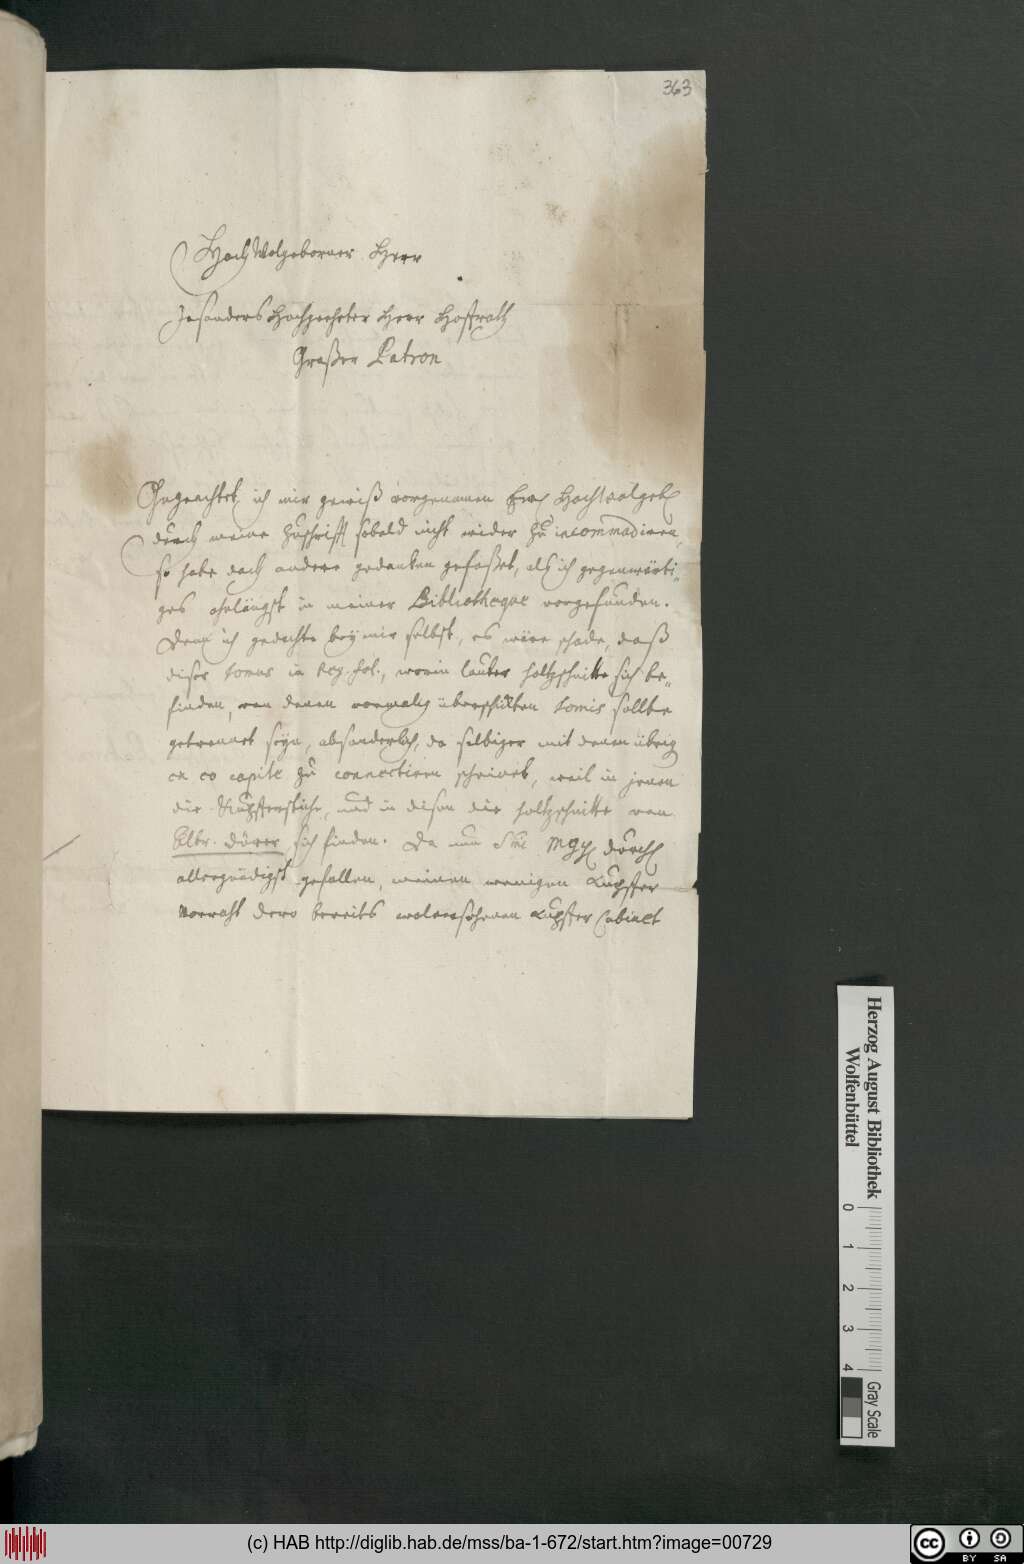 363
HochWolgeborner Herr
Insonders Hochgeehrter Herr Hoffrath
Großer Patron
Ohngeachtet ich mir gewiß vorgenomen Ew. Hochwolgeb.
durch meine Zuschrifft sobald nicht wider zu incommodiren,
so habe doch andere gedanken gefaßet, als ich gegenwärti-
ges ohnlängst in meiner Bibliotheque vorgefunden.
Denn ich gedachte bey mir selbst, es wäre schade, daß
diser tomus in Reg. fol., worin lauter holtzschnitte sich be-
finden, von denen vormals überschickten tomis sollte
getrennet seyn, absonderlich, da selbiger mit denen übrig
ex eo capite zu connectiren scheinet, weil in jenen
die Kupfferstiche, und in disen die holtzschnitte von
Albr. Dürer sich finden. Da nun
allergnädigst gefallen, meinen wenigen Kupffer
Vorraht dero bereits Kupffer Cabinet
Herzog August Bibliothek
Wolfenbüttel
0 1 2 3 4
Gray Scale
(c) HAB http://diglib.hab.de/mss/ba-1-672/start.htm?image=00729
cc BY SA